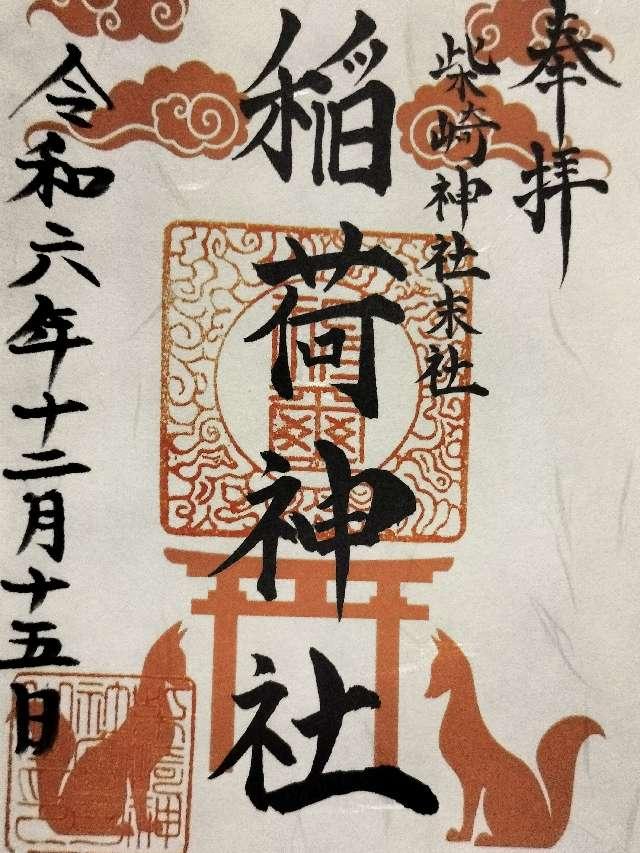 奉拝
柴崎神社末社
稲荷神社
令和六年十二月十五日